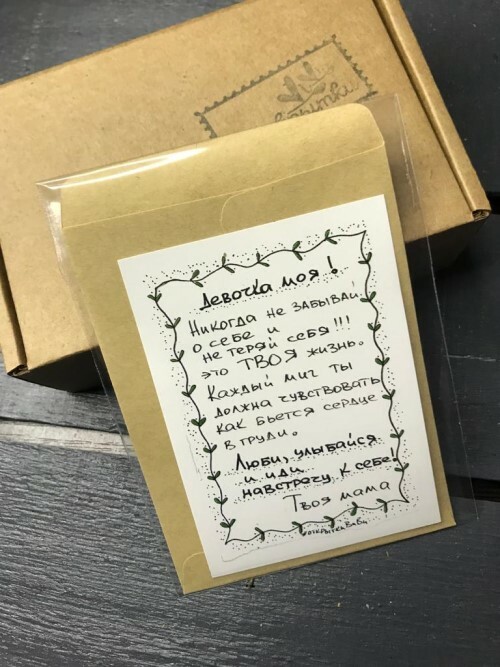 Девочка моя!
Никогда не забывай!
о себе и
не теряй себя!!!
это ТВОЯ жизнь.
Каждый миг ты
должна чувствовать
как бьется сердце
в груди.
Люби, улыбайся
и иди
навстречу к себе!
Твоя мама